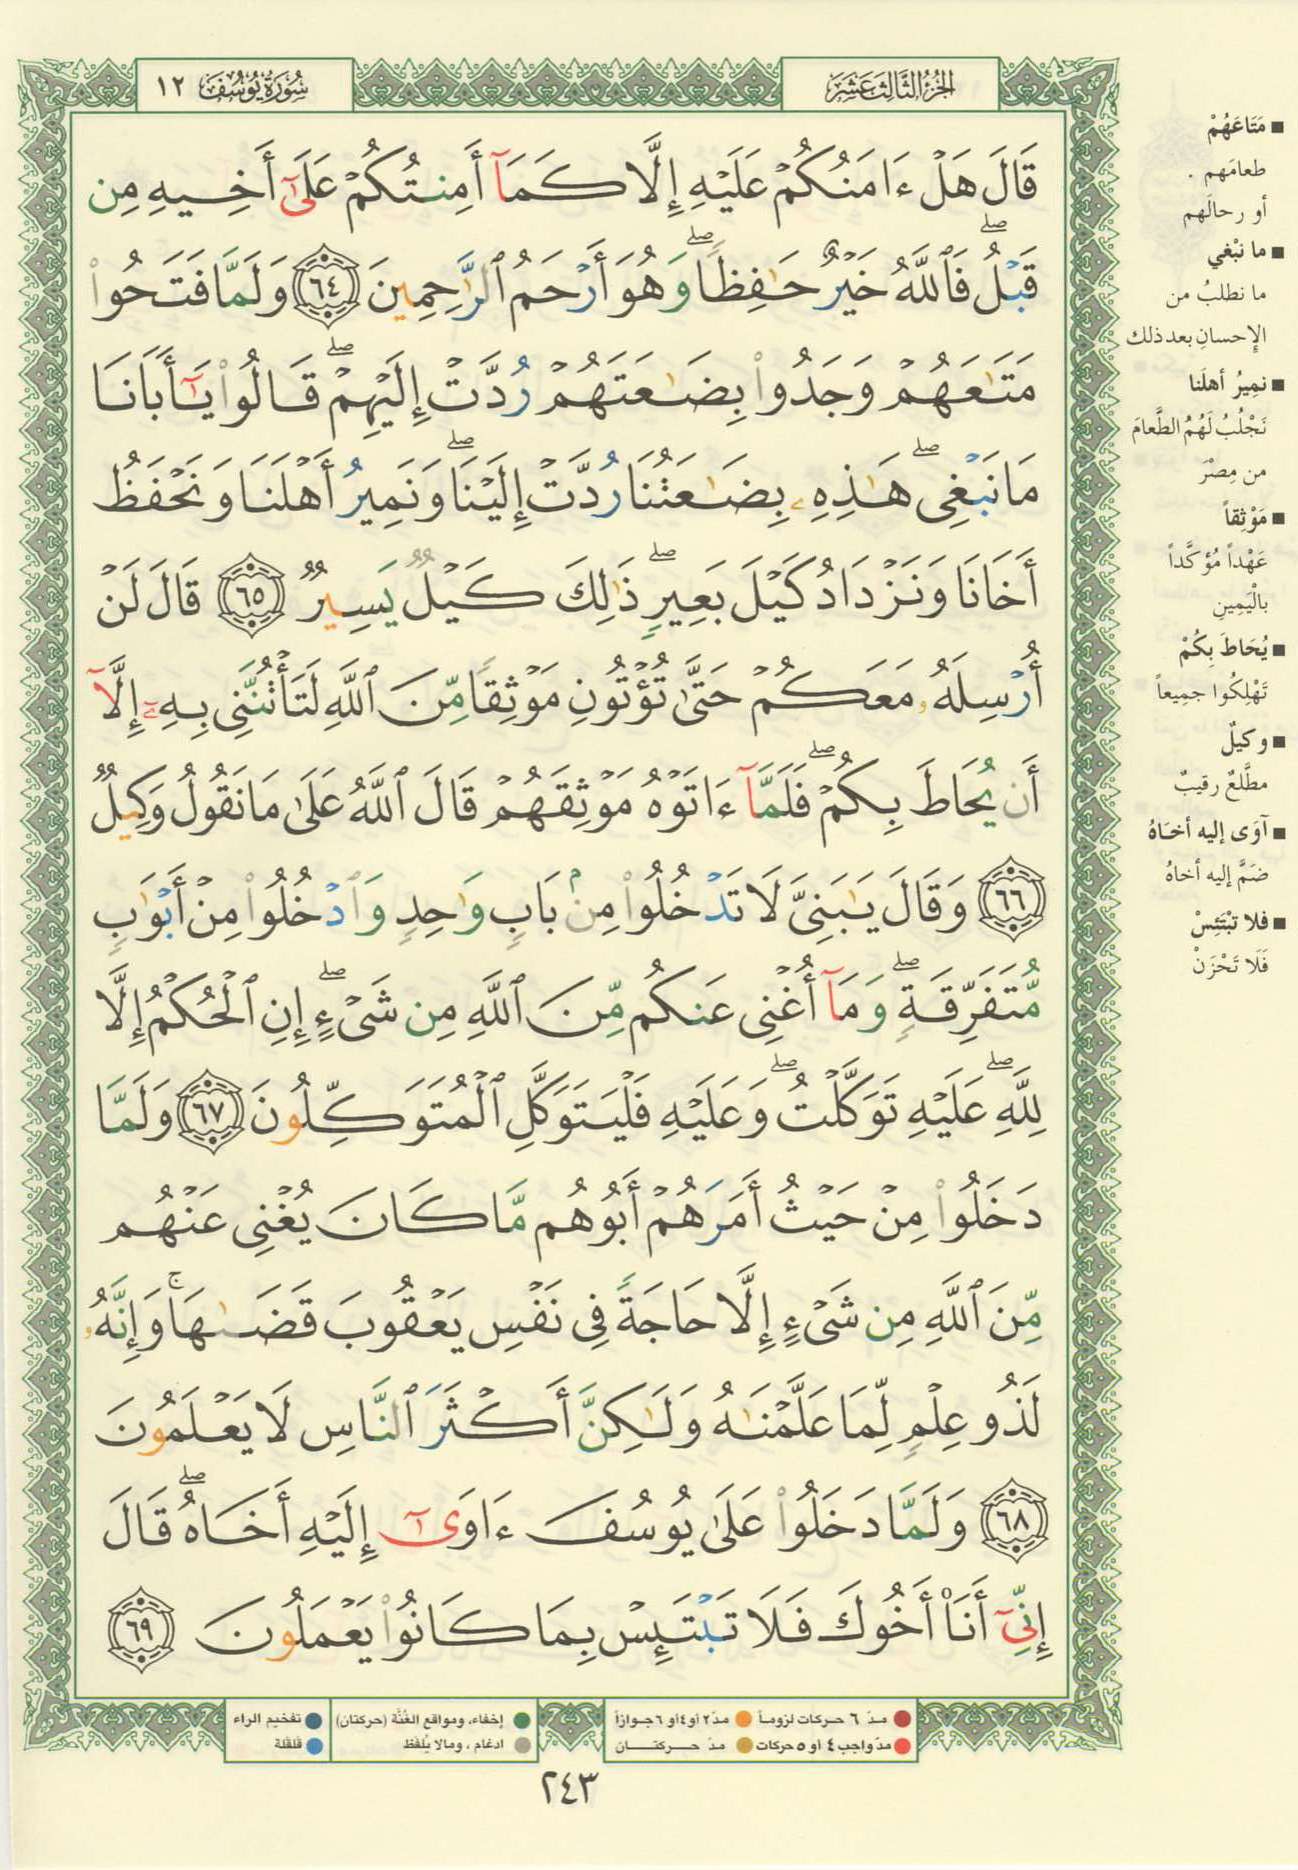 الجُزْءُ الثَّالِثَ عَشَرَ
سُورَةُ يُوسُفَ ١٢
قَالَ هَلْ ءَامَنُكُمْ عَلَيْهِ إِلَّا كَمَآ أَمِنتُكُمْ عَلَىٰٓ أَخِيهِ مِن
قَبْلُ ۖ فَٱللَّهُ خَيْرٌ حَـٰفِظًا ۖ وَهُوَ أَرْحَمُ ٱلرَّٰحِمِينَ ﴿٦٤﴾ وَلَمَّا فَتَحُوا۟
مَتَـٰعَهُمْ وَجَدُوا۟ بِضَـٰعَتَهُمْ رُدَّتْ إِلَيْهِمْ ۖ قَالُوا۟ يَـٰٓأَبَانَا
مَا نَبْغِى ۖ هَـٰذِهِۦ بِضَـٰعَتُنَا رُدَّتْ إِلَيْنَا ۖ وَنَمِيرُ أَهْلَنَا وَنَحْفَظُ
أَخَانَا وَنَزْدَادُ كَيْلَ بَعِيرٍ ۖ ذَٰلِكَ كَيْلٌ يَسِيرٌ ﴿٦٥﴾ قَالَ لَنْ
أُرْسِلَهُۥ مَعَكُمْ حَتَّىٰ تُؤْتُونِ مَوْثِقًا مِّنَ ٱللَّهِ لَتَأْتُنَّنِى بِهِۦٓ إِلَّآ
أَن يُحَاطَ بِكُمْ ۖ فَلَمَّآ ءَاتَوْهُ مَوْثِقَهُمْ قَالَ ٱللَّهُ عَلَىٰ مَا نَقُولُ وَكِيلٌ
﴿٦٦﴾ وَقَالَ يَـٰبَنِىَّ لَا تَدْخُلُوا۟ مِنۢ بَابٍ وَٰحِدٍ وَٱدْخُلُوا۟ مِنْ أَبْوَٰبٍ
مُّتَفَرِّقَةٍ ۖ وَمَآ أُغْنِى عَنكُم مِّنَ ٱللَّهِ مِن شَىْءٍ ۖ إِنِ ٱلْحُكْمُ إِلَّا
لِلَّهِ ۖ عَلَيْهِ تَوَكَّلْتُ ۖ وَعَلَيْهِ فَلْيَتَوَكَّلِ ٱلْمُتَوَكِّلُونَ ﴿٦٧﴾ وَلَمَّا
دَخَلُوا۟ مِنْ حَيْثُ أَمَرَهُمْ أَبُوهُم مَّا كَانَ يُغْنِى عَنْهُم
مِّنَ ٱللَّهِ مِن شَىْءٍ إِلَّا حَاجَةً فِى نَفْسِ يَعْقُوبَ قَضَىٰهَا ۚ وَإِنَّهُۥ
لَذُو عِلْمٍ لِّمَا عَلَّمْنَـٰهُ وَلَـٰكِنَّ أَكْثَرَ ٱلنَّاسِ لَا يَعْلَمُونَ
﴿٦٨﴾ وَلَمَّا دَخَلُوا۟ عَلَىٰ يُوسُفَ ءَاوَىٰٓ إِلَيْهِ أَخَاهُ ۖ قَالَ
إِنِّىٓ أَنَا۠ أَخُوكَ فَلَا تَبْتَئِسْ بِمَا كَانُوا۟ يَعْمَلُونَ ﴿٦٩﴾
■ مَتَاعَهُمْ
طعامَهم .
أو رحالَهم
■ ما نبْغي
ما نطلبُ من
الإحسانِ بعد ذلك
■ نمِيرُ أهلَنا
نَجْلُبُ لَهُمُ الطَّعامَ
من مِصْرَ
■ مَوْثِقاً
عَهْداً مُؤكَّداً
بالْيَمِينِ
■ يُحَاطَ بِكُمْ
تَهْلِكُوا جميعاً
■ وكيلٌ
مطَّلعٌ رقيبٌ
■ آوَى إليه أخَاهُ
ضَمَّ إليه أخاهُ
■ فلا تبْتَئِسْ
فَلَا تَحْزَنْ
مدّ ٦ حركات لزوماً
مدّ ٢ أو ٤ أو ٦ جوازاً
إخفاء، ومواقع الغُنَّة (حركتان)
تفخيم الراء
مدّ واجب ٤ أو ٥ حركات
مدّ حركتان
ادغام ، ومالا يُلفظ
قلقلة
٢٤٣